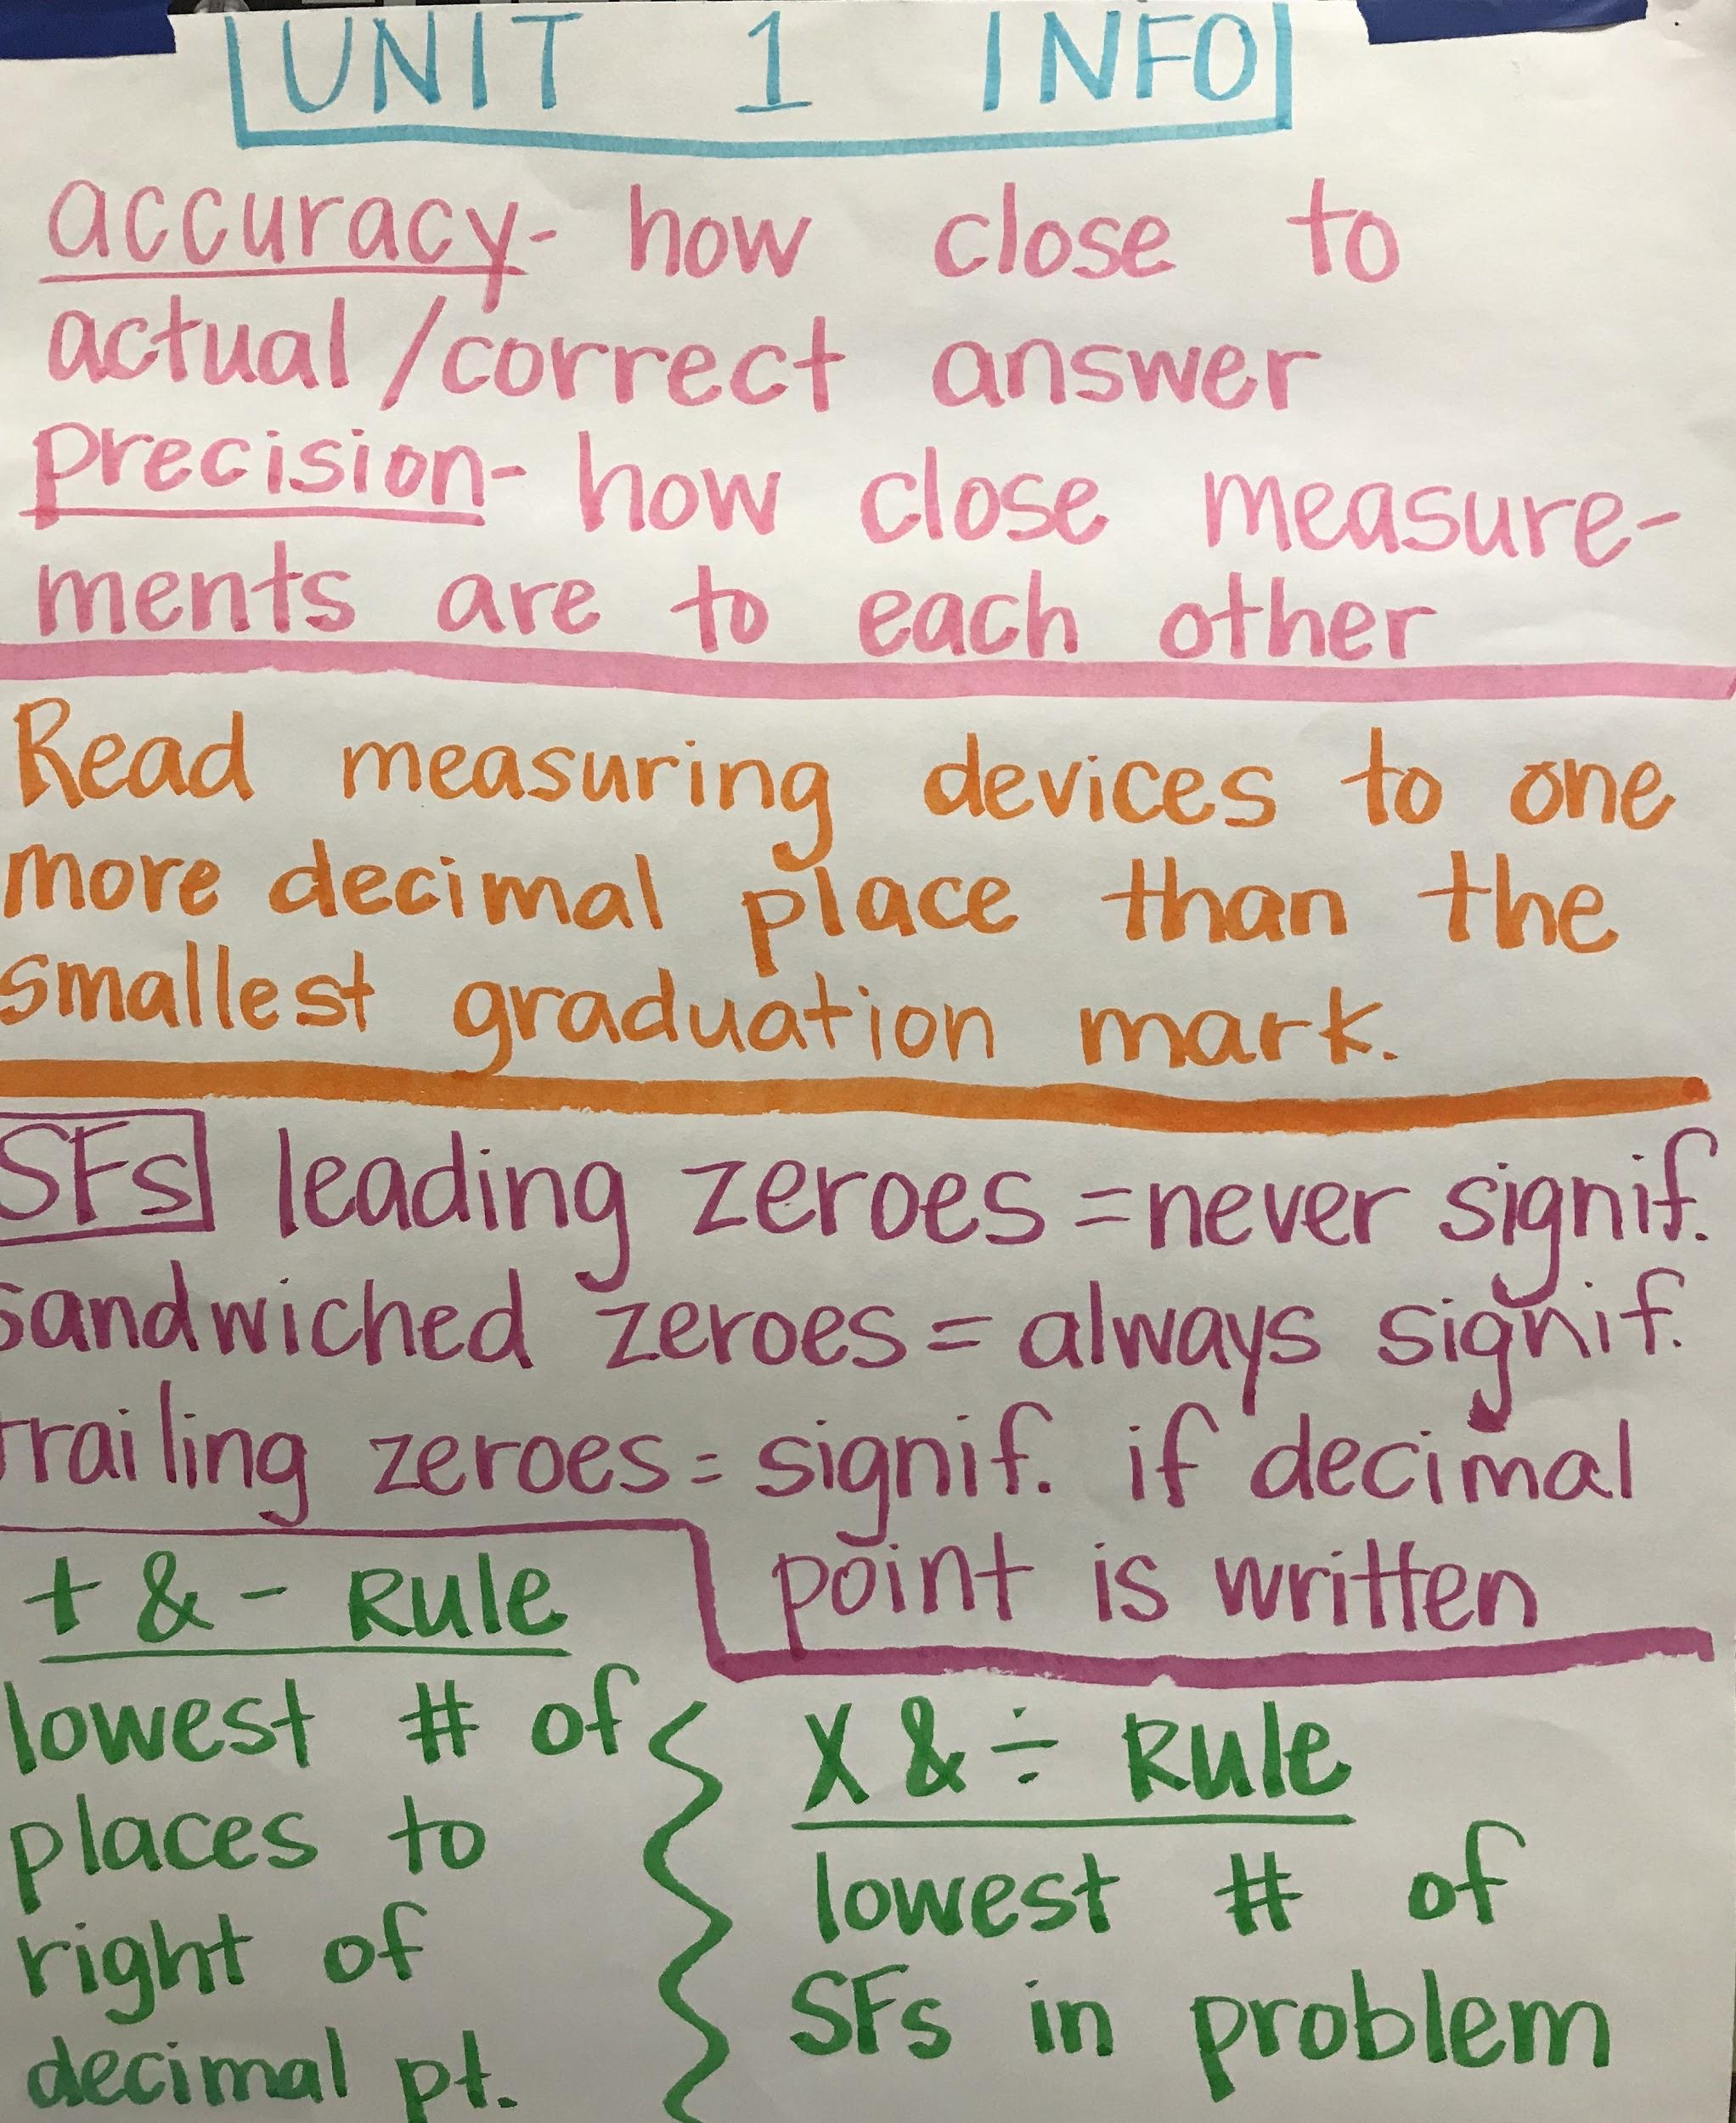 UNIT 1 INFO
accuracy- how close to
actual/correct answer
precision- how close measure-
ments are to each other
Read measuring devices to one
more decimal place than the
smallest graduation mark.
SFs leading zeroes = never signif.
sandwiched zeroes = always signif.
trailing zeroes = signif. if decimal
point is written
+ & - Rule
lowest # of
places to
right of
decimal pt.
X & ÷ Rule
lowest # of
SFs in problem